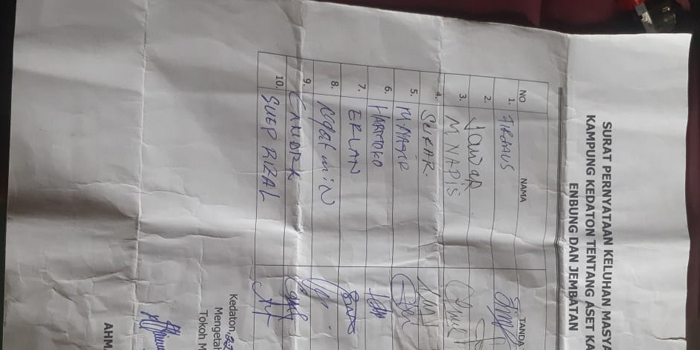 SURAT PERNYATAAN KELUHAN MASYA
KAMPUNG KEDATON TENTANG ASET KA
ENBUNG DAN JEMBATAN
NO NAMA TANDA
1. FIRDAUS
2. JAWAR
3. M NAPIS
4. SUKAR.
5. M NASIR
6. HARTOKO
7. ERLAN
8. Ngatmin
9.
10. SUEP RIZAL
Kedaton,
Mengetah
Tokoh M
AHM